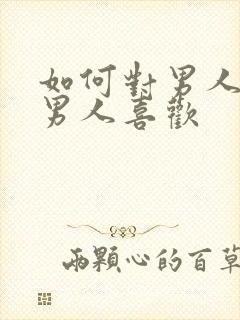 如何對男人
男人喜歡
兩顆心的百草